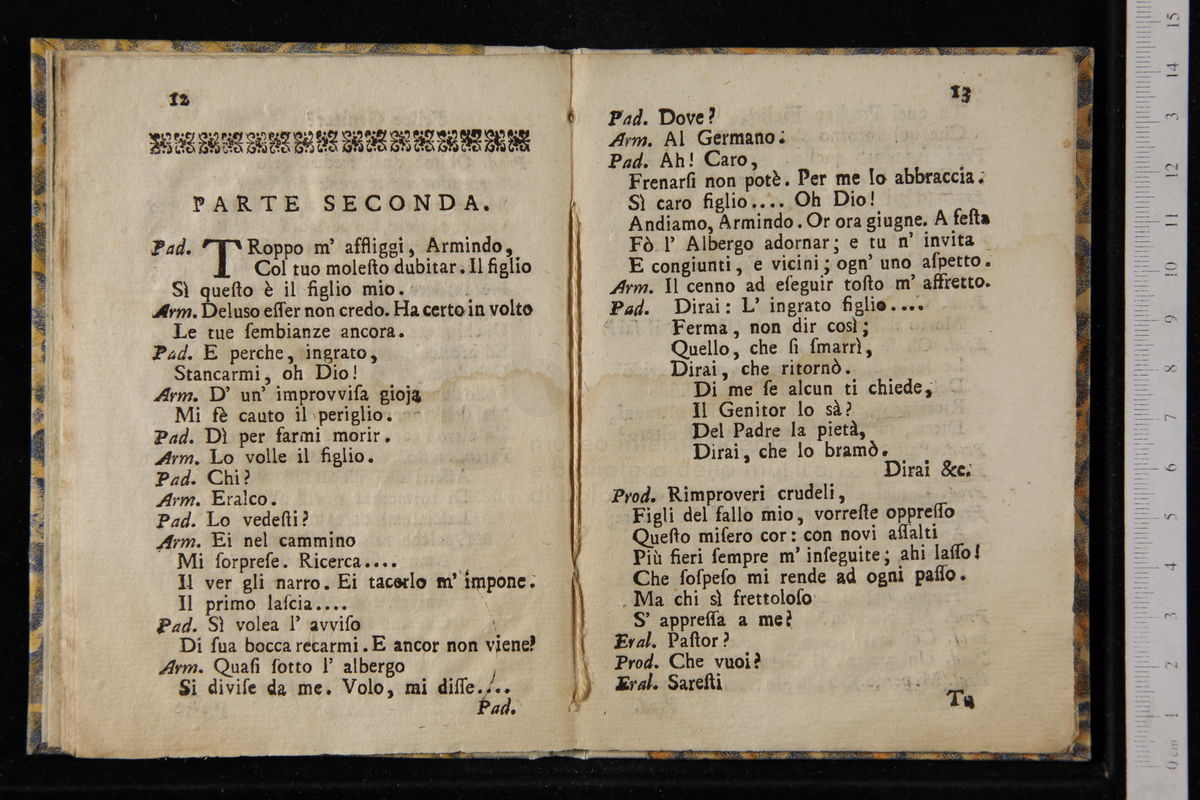 12
PARTE SECONDA.
Pad. TRoppo m' affliggi, Armindo,
Col tuo moleſto dubitar. Il figlio
Sì queſto è il figlio mio.
Arm. Deluso eſſer non credo. Ha certo in volto
Le tue ſembianze ancora.
Pad. E perche, ingrato,
Stancarmi, oh Dio!
Arm. D' un' improvviſa gioja
Mi fè cauto il periglio.
Pad. Dì per farmi morir.
Arm. Lo volle il figlio.
Pad. Chi?
Arm. Eralco.
Pad. Lo vedeſti?
Arm. Ei nel cammino
Mi ſorpreſe. Ricerca....
Il ver gli narro. Ei tacerlo m' impone.
Il primo laſcia....
Pad. Sì volea l' avviſo
Di ſua bocca recarmi. E ancor non viene?
Arm. Quaſi ſotto l' albergo
Si diviſe da me. Volo, mi diſſe....
Pad.
13
Pad. Dove?
Arm. Al Germano.
Pad. Ah! Caro,
Frenarſi non potè. Per me lo abbraccia.
Sì caro figlio.... Oh Dio!
Andiamo, Armindo. Or ora giugne. A feſta
Fò l' Albergo adornar; e tu n' invita
E congiunti, e vicini; ogn' uno aſpetto.
Arm. Il cenno ad eſeguir toſto m' affretto.
Pad. Dirai: L' ingrato figlio....
Ferma, non dir così;
Quello, che ſi ſmarrì,
Dirai, che ritornò.
Di me ſe alcun ti chiede,
Il Genitor lo sà?
Del Padre la pietà,
Dirai, che lo bramò.
Dirai &c.
Prod. Rimproveri crudeli,
Figli del fallo mio, vorreſte oppreſſo
Queſto miſero cor: con novi aſſalti
Più fieri ſempre m' inſeguite; ahi laſſo!
Che ſoſpeſo mi rende ad ogni paſſo.
Ma chi sì frettoloſo
S' appreſſa a me?
Eral. Paſtor?
Prod. Che vuoi?
Eral. Sareſti
Tu
0 cm 1 2 3 4 5 6 7 8 9 10 11 12 3 14 15